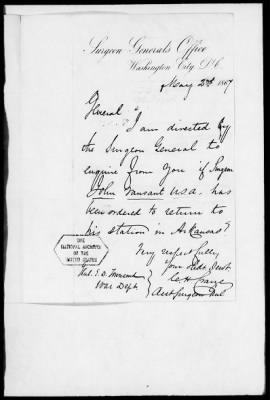 Surgeon General's Office
Washington City, D.C.
May 2nd 1867
General:
I am directed by
the Surgeon General to
enquire from you if Surgeon
John Vansant U.S.A. has
been ordered to return to
his station in Arkansas?
Very respectfully
Your Obdt. Servt
C. H. Crane
Asst Surgeon Genl
THE
NATIONAL ARCHIVES
OF THE
UNITED STATES
Genl. E. D. Townsend
War Dept.